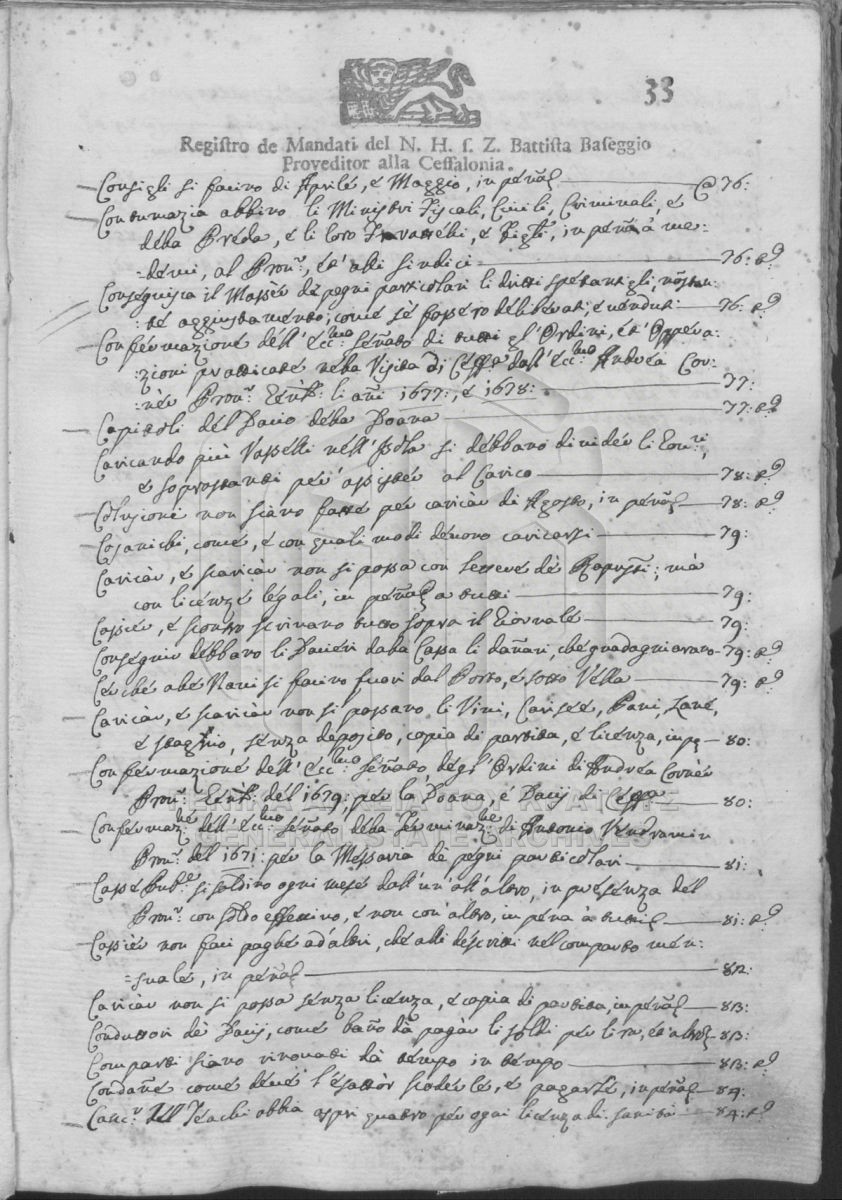 33
Regiſtro de Mandati del N. H. ſ. Z. Battiſta Baſeggio
Proveditor alla Ceffalonia.
Consigli si facino di Aprile, e Maggio, in pena 76:
Contumazia abbino li Ministri Fiscali, Civili, Criminali, e
della Preda, e li loro e Figli, in pena à me:
=demi, al Prou.r, et' alli Sindici 76:
Conseguisca il Massèr de pegni particolari li dritti spetantigli,
te aggiustamento, come se fossero deliberati, e venduti 76:
Confermazione dell' Ecc.mo Senato di tutti gl' Ordini, et' Oppera:
:zioni pratticate nella Visita di Ceff.a dall' Ecc.mo Andrea Cor:
:nèr Prou.r li anni 1677:, e 1678: 77:
Capitoli del Dacio della Doana 77:
Caricando più Vasselli nell' Isola si debbano divider li
e soprastanti per assister al Carico 78:
Colusioni non siano fatte per caricàr di Agosto, in pena 78:
come, e con quali modi devono caricarsi 79:
Caricàr, e scaricàr non si possa con lettere dè mà
con licenze legali, in pena a tutti 79:
Cassier, e scontro scrivano tutto sopra il Giornale 79:
Conseguir debbano li Dacieri dalla Cassa li dannari, che guadagnaranno 79:
Cerche alle Navi si facino fuori dal Porto, e sotto Vella 79:
Caricàr, e scaricàr non si possano li Vini, Carisee, Pani, Lane,
e stagno, senza deposito, copia di partida, e licenza, in p 80:
Confermazione dell' Ecc.mo Senato degl' Ordini di Andrea Cornèr
Prou.r del 1679: per la Doana, e Dacij di Ceff.a 80:
Confermaz.ne dell' Ecc.mo Senato della Terminaz.ne di Antonio Vendramin
Prou.r del 1671: per la Messaria de pegni particolari 81:
Casse Pub.e si saldino ogni mese dall' un' all' altro, in presenza del
Prou.r con soldo effettivo, e non con' altro, in pena à tutti 81:
Cassier non faci paghe ad' altri, che alli descritti nel comparto men:
=suale, in pena 82:
Caricàr non si possa senza licenza, e copia di partida, in pena 83:
Conduttori dè Dacij, come hanno da pagàr li soldi per lira, et' altro 83:
Comparti siano rinovati da tempo in tempo 83:
Condane come deve l'esattòr scoderle, e pagarle, in pena 84:
Canc.r abbia aspri quattro per ogni licenza di sanità 84:
GENERAL STATE ARCHIVES